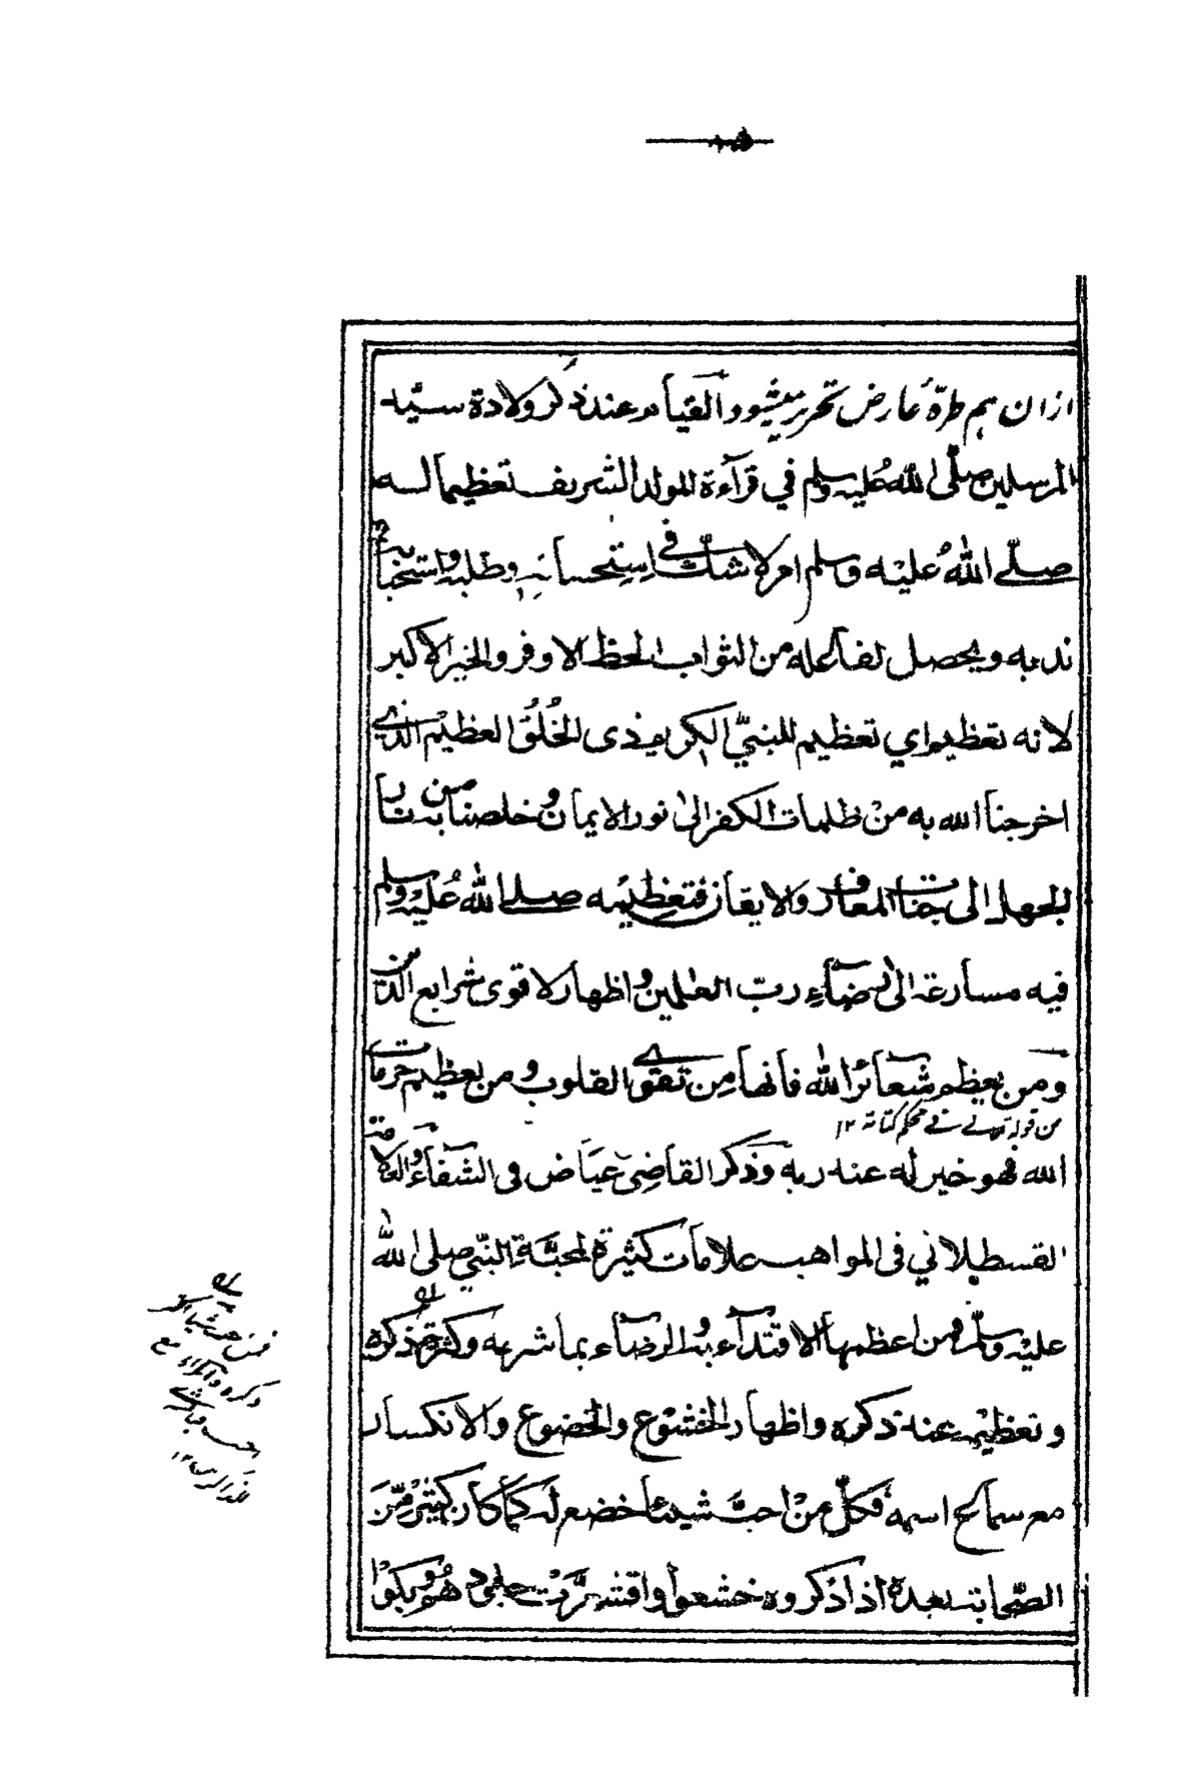 ازان ہم طرّہ عارض تحریر میشود القیام عند ذکر ولادة سیّد
المرسلین صلّی اللّٰه عُلیه وسلم في قرآءة المولد الشریف تعظیما له
صلّے اللّٰهُ عُلیْه وسلم امر لا شكّ في استحسانه وطلبه واستحبابه
ندبه ویحصل لفاعله من الثواب الحظ الاوفر والخیر الاکبر
لانه تعظیم اي تعظیم للنبيّ الکریم ذی الخُلُق العظیم الذے
اخرجنا الله به من ظلمات الکفر الیٰ نور الایمان وخلصنا به من نار
الجهل الی جنات المعارف والایقان فتعظیمه صلے اللّٰه عُلیْه وسلم
فیه مسارعة الیٰ رضآءِ ربّ العٰلمین واظهار لاقوی شرایع الدین
ومن یعظم شعآئر اللّٰه فانها مِن تقوے القلوب ومن یعظم حرمات
من قوله تعالے فے محکم کتابه ١٢
الله فهو خیر له عند ربه وذکر القاضِی عیاض فی الشفآء والعلامة
القسطلاني فی المواهب علامات کثیرة لمحبّة النّبي صلی اللّٰه
علیْه وسلّم ومن اعظمها الاقتدآء به والرضآء بما شرعه وکثرة ذکره
وتعظیمه عند ذکره واظهار الخشوع والخضوع والانکسار
مع سماع اسمه فکلّ من احبّ شیئا خضع له کما کان کثیر مّن
الصّحابة بعده اذا ذکروه خشعوا واقشعرّت جلودهم وبکوا
فمن
ذکره